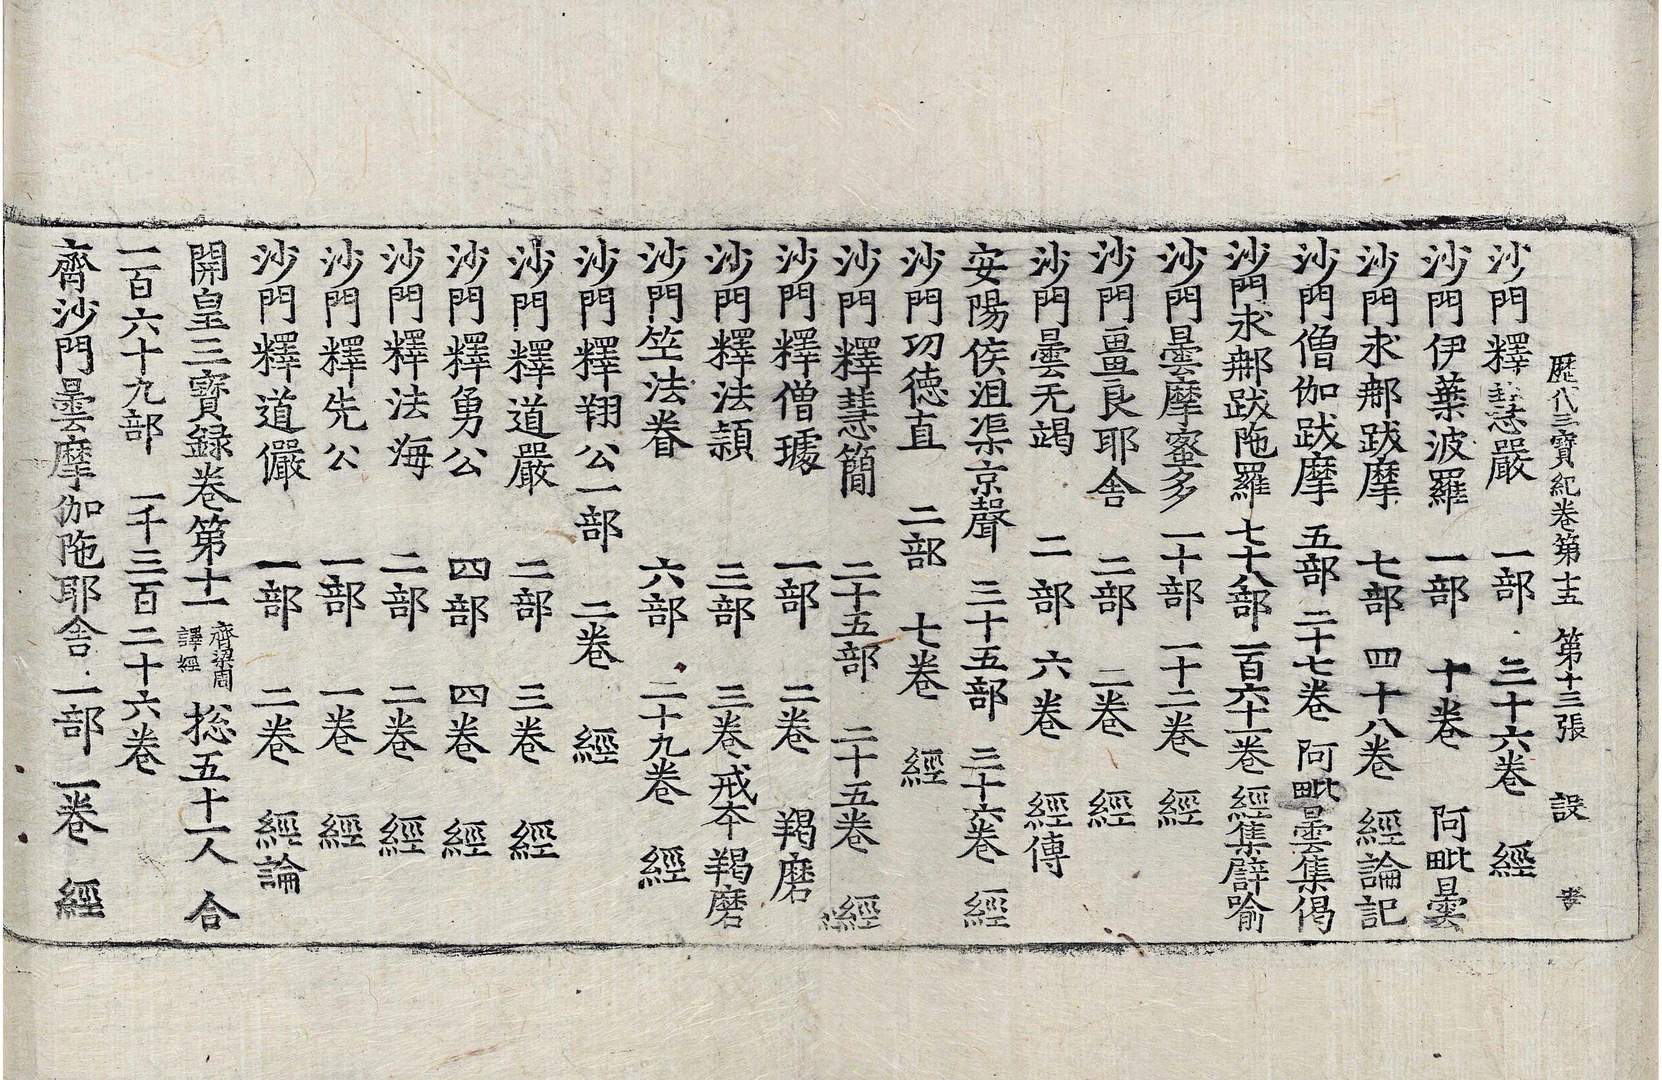 歷代三寶紀卷第十五　第十三張　設
沙門釋慧嚴　一部　三十六卷　經
沙門伊葉波羅　一部　十卷　阿毗曇
沙門求𨚗跋摩　七部　四十八卷　經論記
沙門僧伽跋摩　五部　二十七卷　阿毗曇集偈
沙門求𨚗跋陁羅　七十八部　一百六十一卷　經集辟喻
沙門曇摩蜜多　一十部　一十二卷　經
沙門畺良耶舍　二部　二卷　經
沙門曇无竭　二部　六卷　經傳
安陽侯沮渠京聲　三十五部　三十六卷　經
沙門功徳直　二部　七卷　經
沙門釋慧簡　二十五部　二十五卷　經
沙門釋僧璩　一部　二卷　羯磨
沙門釋法穎　三部　三卷戒本羯磨
沙門笁法眷　六部　二十九卷　經
沙門釋翔公一部　二卷　經
沙門釋道嚴　二部　三卷　經
沙門釋勇公　四部　四卷　經
沙門釋法海　二部　二卷　經
沙門釋先公　一部　一卷　經
沙門釋道儼　一部　二卷　經論
開皇三寶録卷第十一　齊梁周譯經　捴五十一人　合
一百六十九部　一千三百二十六卷
齊沙門曇摩伽陁耶舍　一部　一卷　經